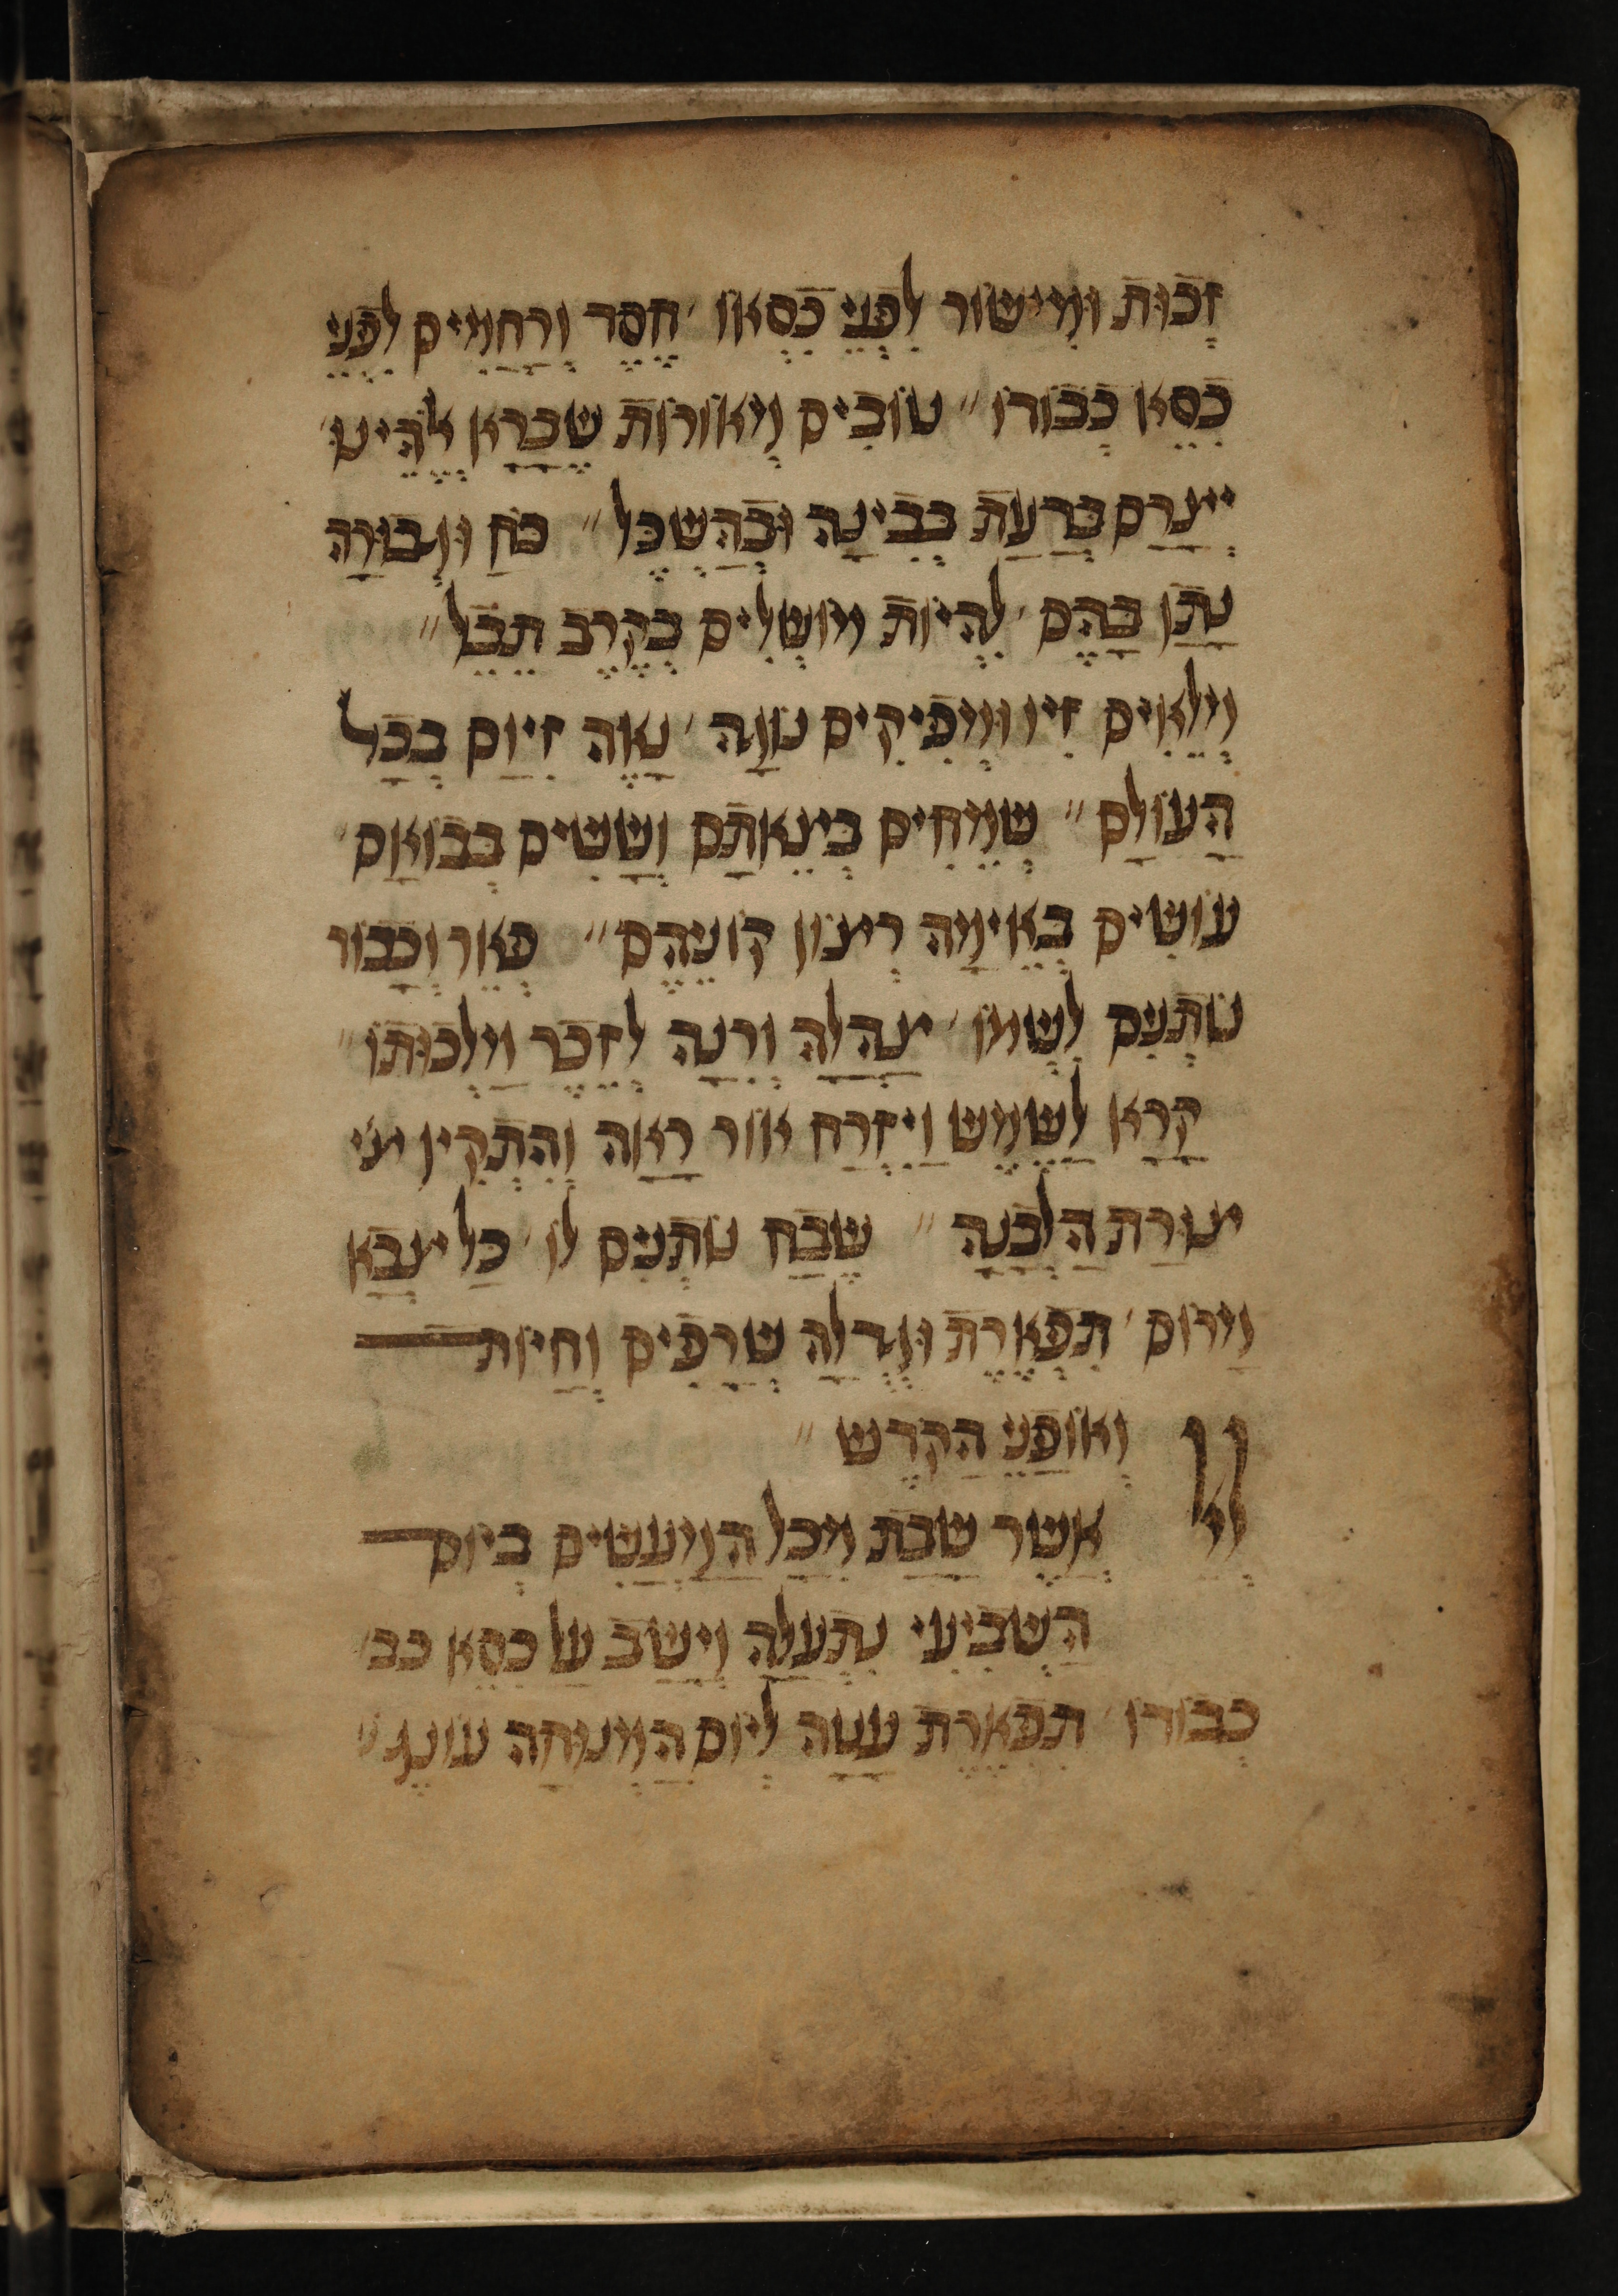 זָכוּת וּמִישׁוֹר לִפְנֵי כִסְאוֹ ׳ חֶסֶד וְרַחֲמִים לִפְנֵי
כִסֵא כְבוֹדוֹ ״ טוֹבִים מְאוֹרוֹת שֶׁבָּרָא אֱלֹהֵינוּ
יְצָרָם בְּדַעַת בְּבִינָה וּבְהַשְׂכֵּל ״ כֹּחַ וּגְבוּרָה
נָתַן בָּהֶם ׳ לִהְיוֹת מוֹשְׁלִים בְּקֶרֶב תֵּבֵל ״
מְלֵאִים זִיו וּמְפִיקִים נוֹגַהּ ׳ נָאֶה זִיוָם בְּכָל
הָעוֹלָם ״ שְׂמֵחִים בְּצֵאתָם וְשָׂשִׂים בְּבוֹאָם ׳
עוֹשִׂים בְּאֵימָה רְצוֹן קוֹנֵיהֶם ״ פְּאֵר וְכָבוֹד
נוֹתְנִים לִשְׁמוֹ ׳ צָהֳלָה וְרִנָּה לְזֵכֶר מַלְכוּתוֹ ״
קָרָא לַשֶּׁמֶשׁ וַיִּזְרַח אוֹר רָאָה וְהִתְקִין צו׳
צוּרַת הַלְּבָנָה ״ שֶׁבַח נוֹתְנִים לוֹ ׳ כָּל צְבָא
מָרוֹם ׳ תִּפְאֶרֶת וּגְדֻלָּה שְׂרָפִים וְחַיּוֹת
וְאוֹפַנֵּי הַקֹּדֶשׁ ״
אֲשֶׁר שָׁבַת מִכָּל הַמַּעֲשִׂים בְּיוֹם
הַשְּׁבִיעִי נִתְעַלָּה וְיָשַׁב עַל כִּסֵּא כב׳
כְבוֹדוֹ ׳ תִּפְאֶרֶת עָטָה לְיוֹם הַמְּנוּחָה עוֹנֶג ״